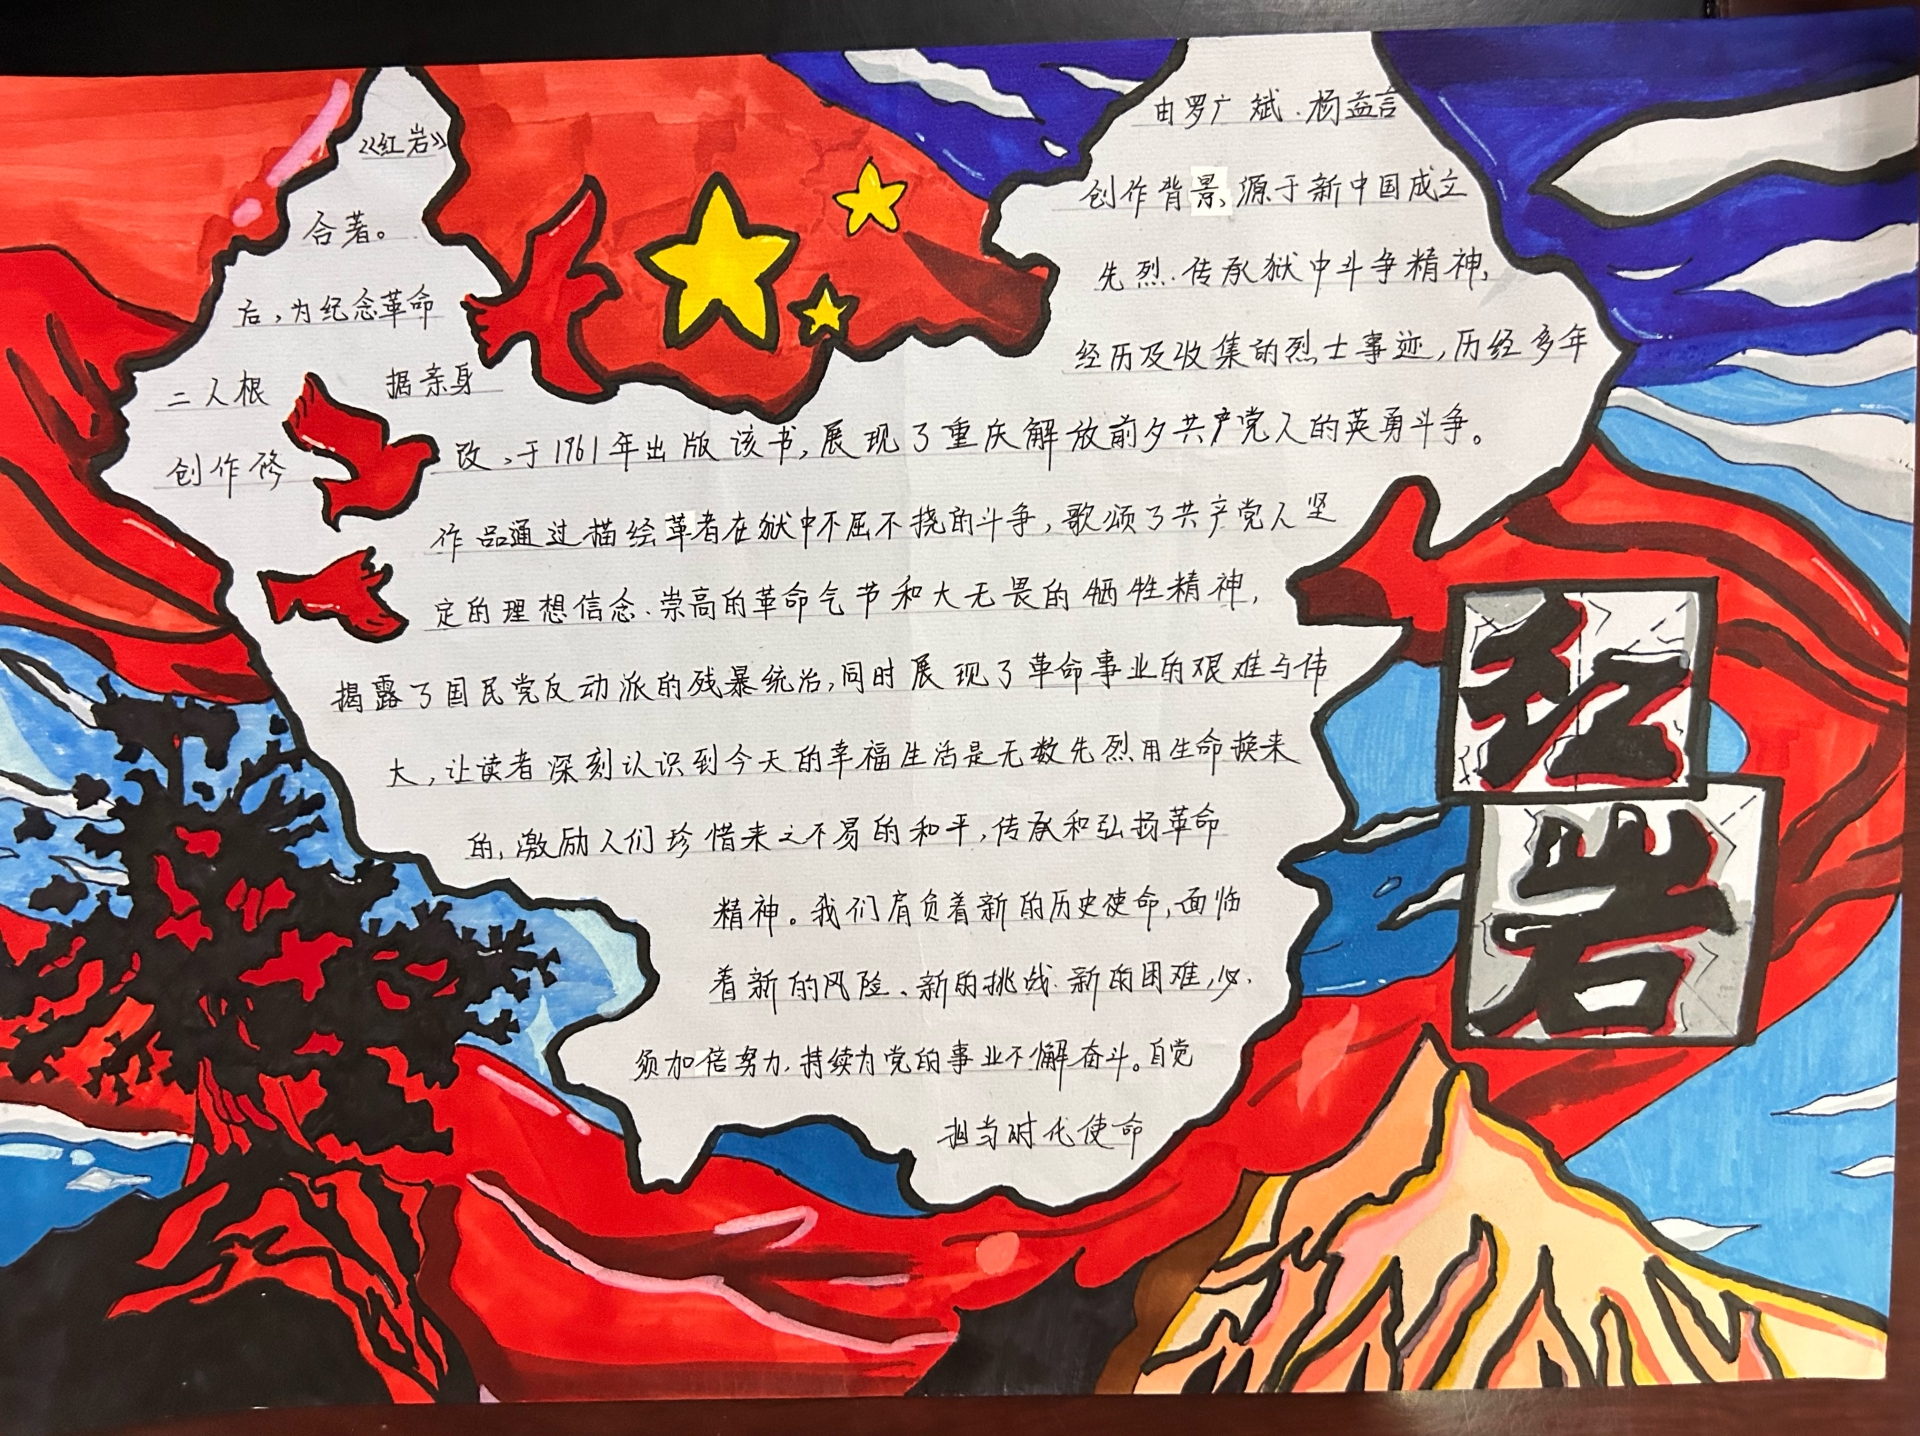 《红岩》 由罗广斌.杨益言
合著。 创作背景,源于新中国成立
后,为纪念革命 先烈.传承狱中斗争精神,
二人根 据亲身 经历及收集的烈士事迹,历经多年
创作修 改,于1961年出版该书,展现了重庆解放前夕共产党人的英勇斗争。
作品通过描绘革者在狱中不屈不挠的斗争,歌颂了共产党人坚
定的理想信念.崇高的革命气节和大无畏的牺牲精神,
揭露了国民党反动派的残暴统治,同时展现了革命事业的艰难与伟
大,让读者深刻认识到今天的幸福生活是无数先烈用生命换来
的,激励人们珍惜来之不易的和平,传承和弘扬革命
精神。我们肩负着新的历史使命,面临
着新的风险、新的挑战.新的困难,必.
须加倍努力,持续为党的事业不懈奋斗。自觉
担当时代使命
红
岩